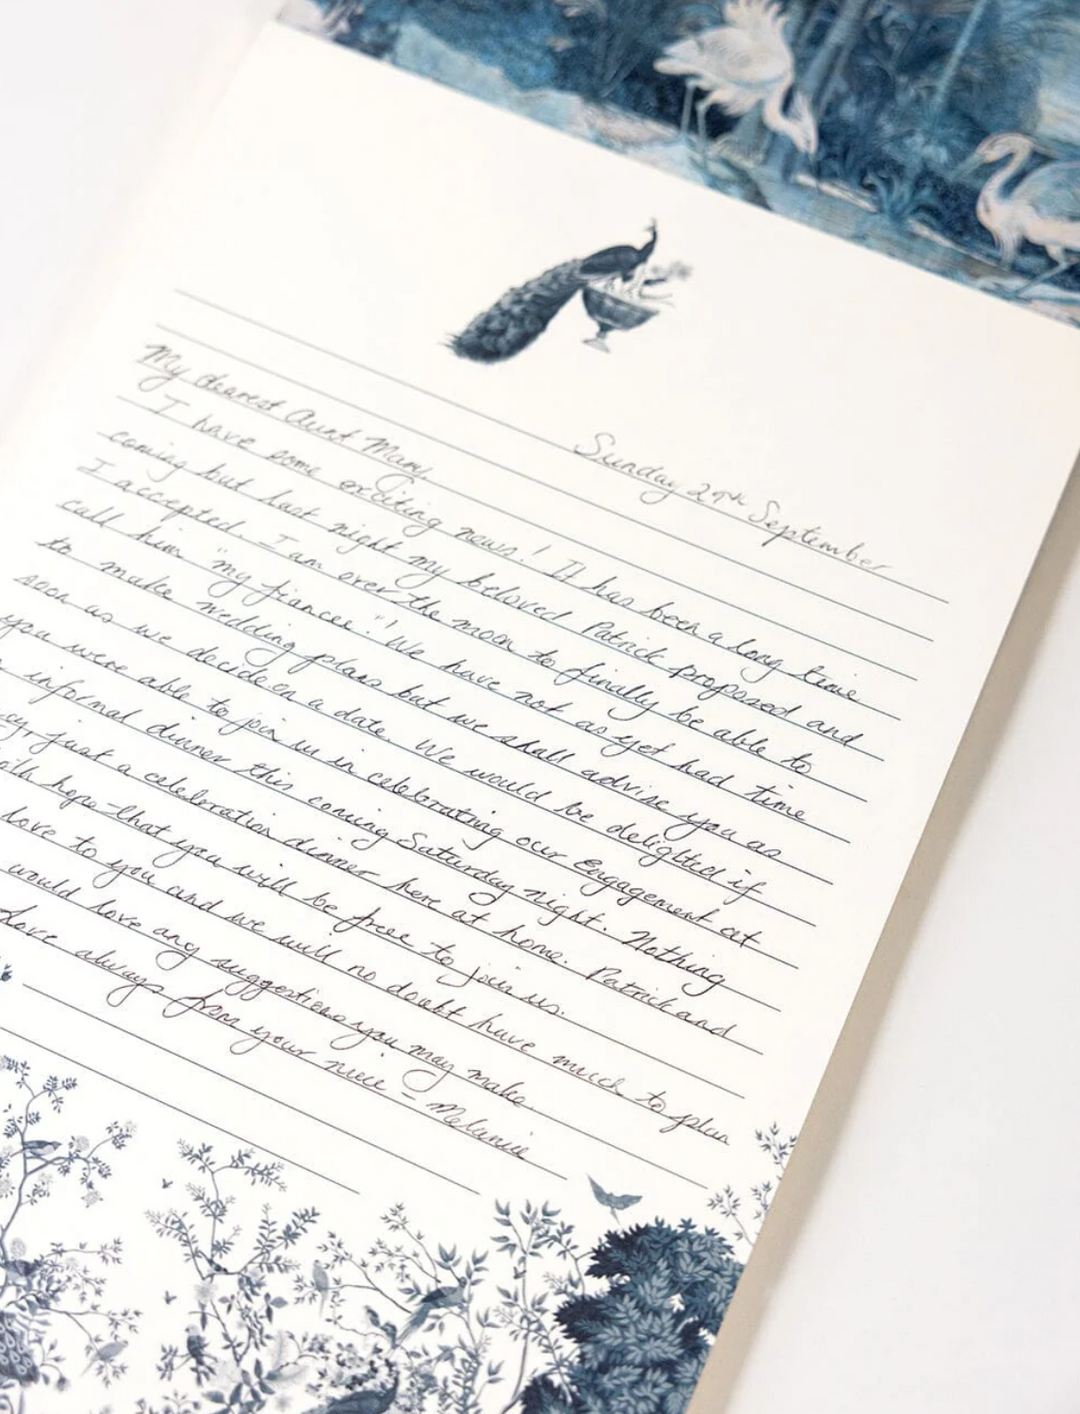 Sunday 29th September
My dearest Aunt Mary,
I have some exciting news! It has been a long time
coming but last night my beloved Patrick proposed and
I accepted. I am over the moon to finally be able to
call him "my fiancee"! We have not as yet had time
to make wedding plans but we shall advise you as
soon as we decide on a date. We would be delighted if
you were able to join us in celebrating our Engagement at
informal dinner this coming Saturday night. Nothing
just a celebration dinner here at home. Patrick and
hope that you will be free to join us.
love to you and we will no doubt have much to plan
would love any suggestions you may make.
love always from your niece - Melanie